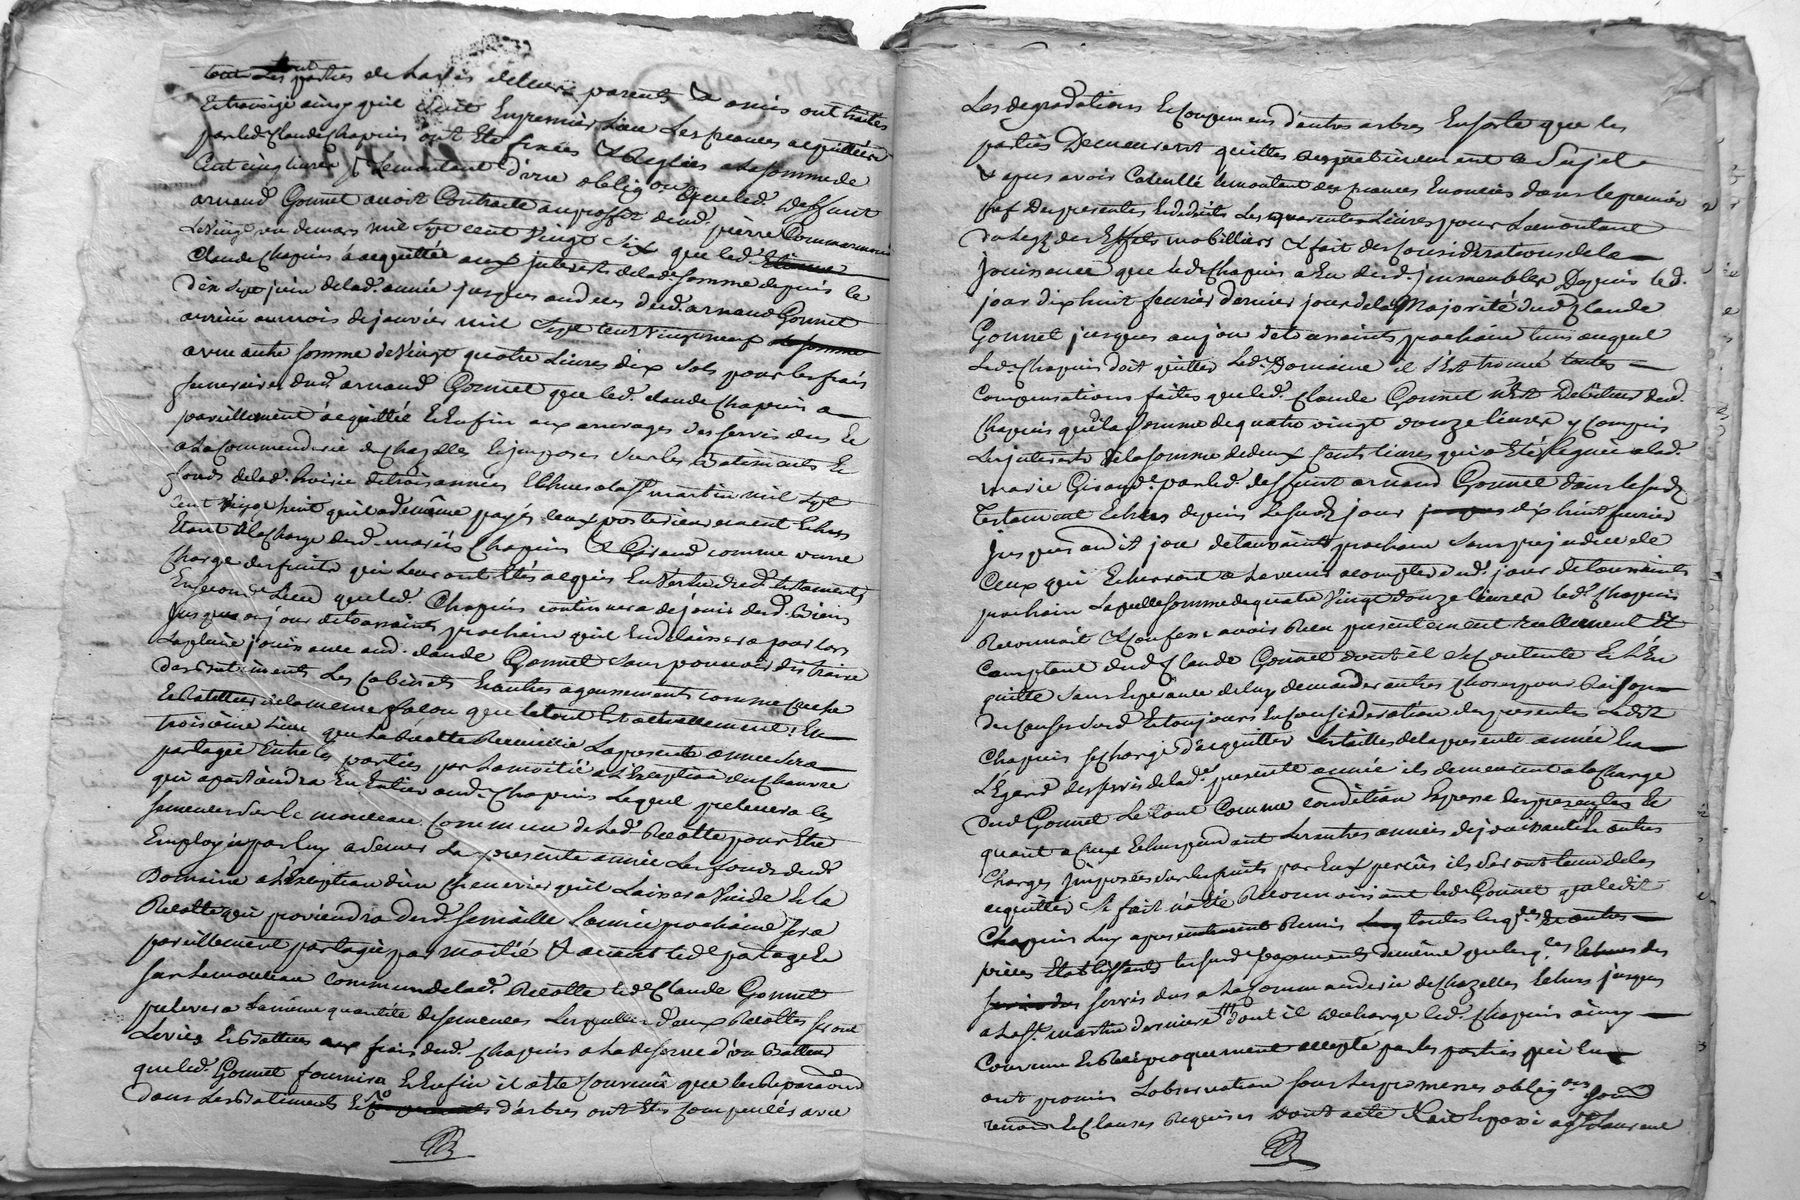 parties de Lavis de leurs parents & amis ont traités
et transigé ainsy quil suit En premier Lieu Les sceances acquittées
par led. Claude Chapuis ont Eté fixées & Reglées a la somme de
Cent cinq livres Le montant d'une obligon que led. deffunt
arnaud Gonnet avoit Contracté au proffit dud. pierre
Le vingt un de mars mil sept cent vingt six que led.
Claude Chapuis a acquittée aux interests de lad. somme depuis le
dix sept juin de lad. année jusques au deces dud. arnaud Gonnet
arrivé au mois de janvier mil sept cent vingt neuf
a une autre somme de vingt quatre Livres dix sols pour les frais
funeraires dud. arnaud Gonnet que led. claude Chapuis a
pareillement acquittée Et Enfin aux arrerages des servis dus Et
a la Commenderie de Chazelles Et imposés sur les Batiments Et
fonds de lad. hoirie de trois années Echues a la St. martin mil sept
cent vingt huit quil a de même payés Ceux posterieurement Echus
Etant a la charge desd. mariés Chapuis & Giraud comme une
Charge des fruits qui leur ont Etés acquis En vertu dud. testament
En second Lieu que led. Chapuis continuera de jouir desd. Biens
jusques aú jour de toussaints prochain quil En delaissera pour lors
La pleine jouissance aud. claude Gonnet sans pouvoir distraire
des Batiments Les Cabinets Et autres agencements comme creche
Et Ratelliers de la meme façon que le tout Est actuellement; En
troisième Lieu que La Recolte Recueillie La presente année sera
partagée Entre les parties par la moitié a l'Exception du Chanvre
qui apartiendra En Entier aud. Chapuis Lequel prelevera les
semences sur le monceau Commun de lad. Recolte pour Etre
Employée par luy a semer La presente année Les fonds dud.
Domaine a l'Exception d'un chenevier quil Laissera vuide Et la
Recolte qui proviendra desd. semaille L'année prochaine sera
pareillement partagée par moitié & avant led. partage Et
sur le monceau commun de lad. Recolte led. Claude Gonnet
prelevera La même quantité de semences Lesquelles deux Recoltes seront
Levées Et Battues aux frais dud. Chapuis a la Reserve d'un Batteur
que led. Gonnet fournira Et Enfin il a Eté Convenu que les Reparaons
dans Les Batiments d'arbres ont Eté Compensées avec
Les degradations Et Coupemens d'autres arbres En sorte que les
parties Demeurent quittes Respectivement a ce Sujet
& apres avoir Calculé le montant des sceances Enoncées dans le premier
des presentes Les quarente Livres pour Le montant
du Legs des Effets mobilliers & fait des Considerations de la
jouissance que led. Chapuis a Eu desd. immeubles Depuis led.
jour dix huit fevrier dernier jour de la Majorité dud. Claude
Gonnet jusques au jour de toussaints prochain tems auquel
Led. Chapuis doit quitter Led. Domaine il s'Est trouvé toutes
Compensations faites que led. Claude Gonnet n'Est Debiteur dud.
Chapuis que de la somme de quatre vingt douze livres y Compris
Les interests de la somme de deux Cents livres qui a Eté Leguée a lad.
marie Giraud. par led. deffunt arnaud Gonnet dans le susd.
testament Echus depuis Le susd. jour dix huit fevrier
jusques audit jour de toussaints prochain sans prejudice de
Ceux qui Echerront a Lavenir a compter dud. jour de toussaints
prochain Laquelle somme de quatre vingt douze livres led. Chapuis
Reconnoit & Confesse avoir Reçu presentement reellement &
Comptant dud. Claude Gonnet dont il se Contente Et l'En
quitte sans Esperance de luy demander autres choses pour Raison
des causes susd. Et toujours En Consideration des presentes Ledit
Chapuis se charge d'acquitter Les tailles de la presente année Et a
L'Égard des servis de lad. presente année ils demeurent a la Charge
dud. Gonnet Le tout Comme condition Expresse des presentes Et
quant a Ceux Echus pendant Les autres années de jouissance Et autres
Charges imposées sur les fruits par Eux perçûs ils seront tenu de les
acquitter Si fait n'a Eté Reconnoissant led. Gonnet que ledit
Chapuis Luy a presentement Remis toutes les Et autres
pieces Etablissants les susd. payements de même que les des
servis dus a la Commanderie de Chazelles Echus jusques
a la St. martin derniere dont il decharge led. Chapuis ainsy
Convenu Et Reciproquement accepté par les parties qui En
ont promis Lobservation sous Les promesses obligons
renonc. Et Clauses Requises Dont acte fait Et passé a St. Laurent